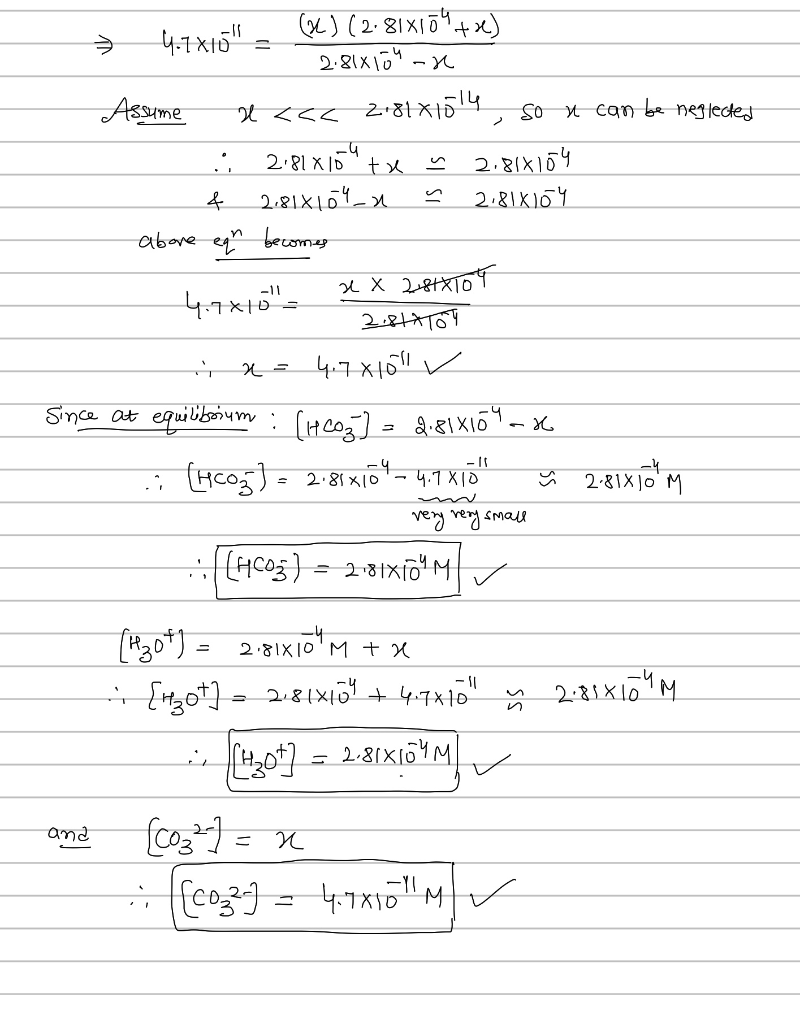 ⇒ 4.7×10⁻¹¹ = (x) (2.81×10⁻⁴ + x) / 2.81×10⁻⁴ - x
Assume x <<< 2.81×10⁻¹⁴, so x can be neglected
∴ 2.81×10⁻⁴ + x ≃ 2.81×10⁻⁴
& 2.81×10⁻⁴ - x ≃ 2.81×10⁻⁴
above eqⁿ becomes
4.7×10⁻¹¹ = x × 2.81×10⁻⁴ / 2.81×10⁻⁴
∴ x = 4.7×10⁻¹¹ ✓
Since at equilibrium : [HCO₃⁻] = 2.81×10⁻⁴ - x
∴ [HCO₃⁻] = 2.81×10⁻⁴ - 4.7×10⁻¹¹ ≈ 2.81×10⁻⁴ M
very very small
∴ [HCO₃⁻] = 2.81×10⁻⁴ M ✓
[H₃O⁺] = 2.81×10⁻⁴ M + x
∴ [H₃O⁺] = 2.81×10⁻⁴ + 4.7×10⁻¹¹ ≈ 2.81×10⁻⁴ M
∴ [H₃O⁺] = 2.81×10⁻⁴ M ✓
and [CO₃²⁻] = x
∴ [CO₃²⁻] = 4.7×10⁻¹¹ M ✓